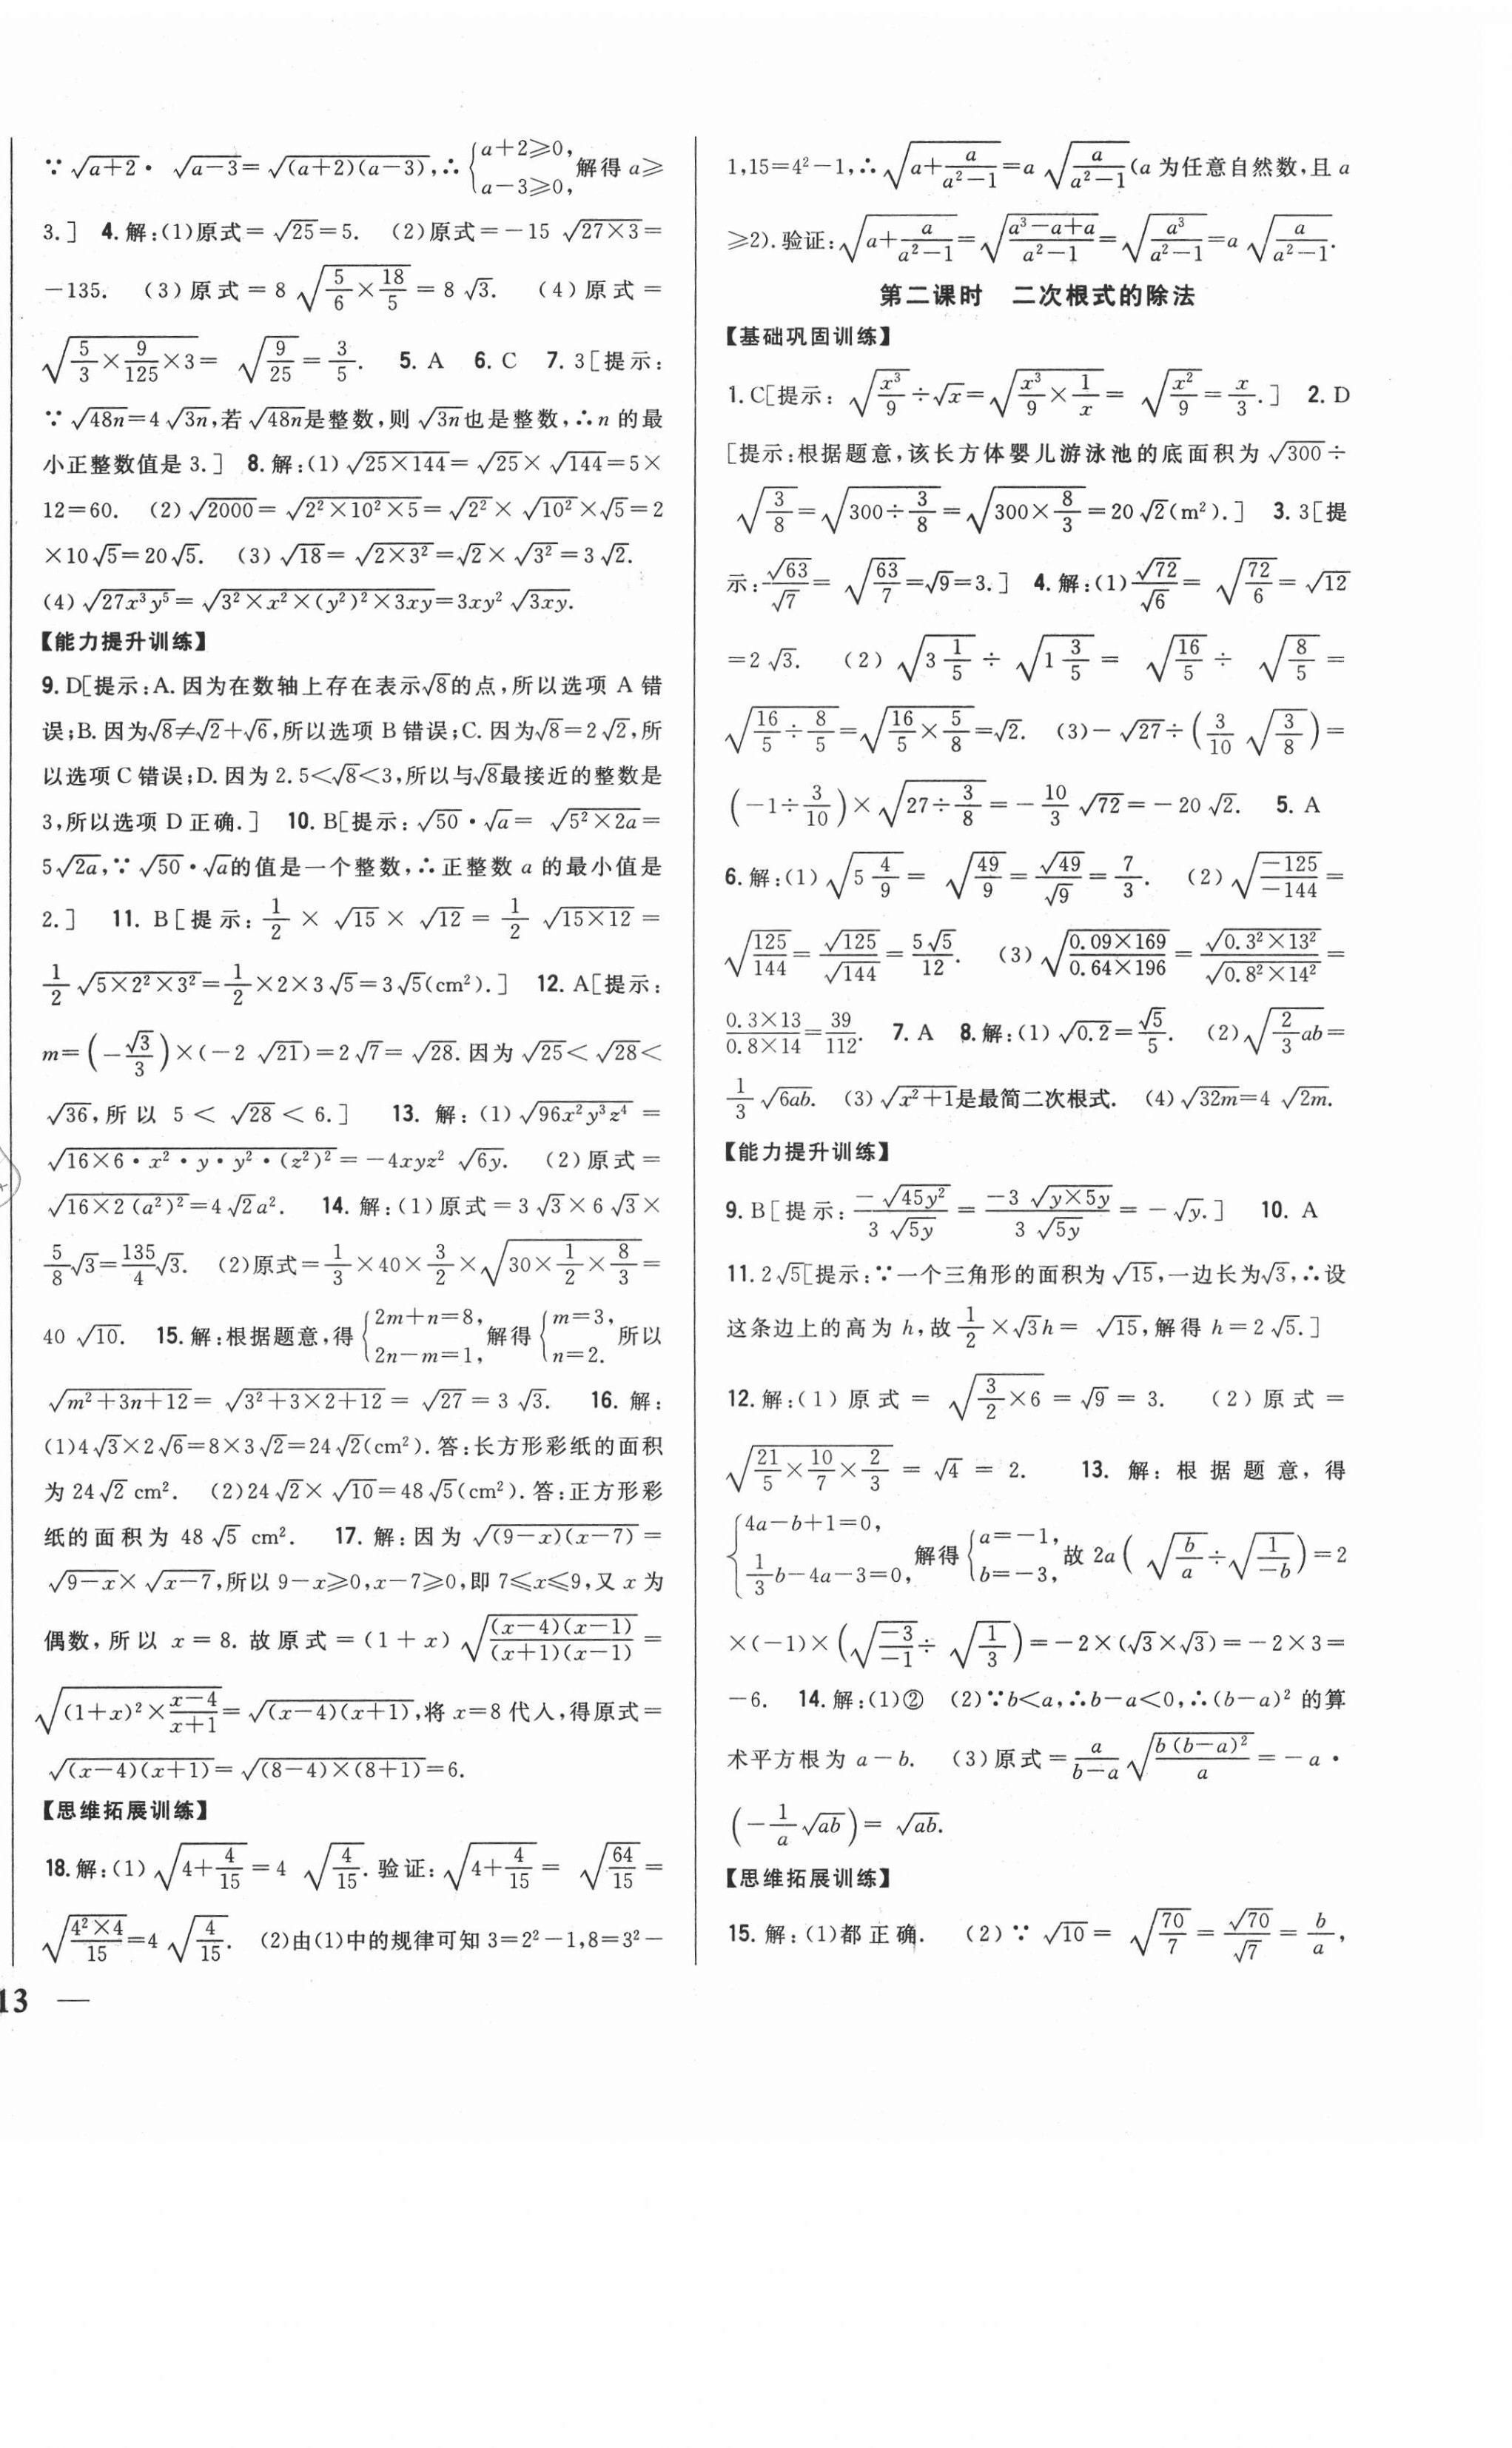 ∵√(a+2)·√(a−3)=√((a+2)(a−3)),∴{a+2⩾0, a−3⩾0,解得 a⩾
3.] 4.解:(1)原式=√25=5. (2)原式=−15√(27×3)=
−135. (3)原式=8√(5/6×18/5)=8√3. (4)原式=
√(5/3×9/125×3)=√(9/25)=3/5. 5. A 6. C 7. 3[提示:
∵√(48n)=4√(3n),若√(48n)是整数,则√(3n)也是整数,∴n 的最
小正整数值是 3.] 8.解:(1)√(25×144)=√25×√144=5×
12=60. (2)√2000=√(2²×10²×5)=√(2²)×√(10²)×√5=2
×10√5=20√5. (3)√18=√(2×3²)=√2×√(3²)=3√2.
(4)√(27x³y⁵)=√(3²×x²×(y²)²×3xy)=3xy²√(3xy).
【能力提升训练】
9. D[提示:A.因为在数轴上存在表示√8的点,所以选项 A 错
误;B.因为√8≠√2+√6,所以选项 B 错误;C.因为√8=2√2,所
以选项 C 错误;D.因为 2.5<√8<3,所以与√8最接近的整数是
3,所以选项 D 正确.] 10. B[提示:√50·√a=√(5²×2a)=
5√(2a),∵√50·√a的值是一个整数,∴正整数 a 的最小值是
2.] 11. B[提示:1/2×√15×√12=1/2√(15×12)=
1/2√(5×2²×3²)=1/2×2×3√5=3√5(cm²).] 12. A[提示:
m=(−√3/3)×(−2√21)=2√7=√28.因为√25<√28<
√36,所以 5<√28<6.] 13. 解:(1)√(96x²y³z⁴)=
√(16×6·x²·y·y²·(z²)²)=−4xyz²√(6y). (2)原式=
√(16×2(a²)²)=4√2a². 14.解:(1)原式=3√3×6√3×
5/8√3=135/4√3. (2)原式=1/3×40×3/2×√(30×1/2×8/3)=
40√10. 15.解:根据题意,得{2m+n=8, 2n−m=1,解得{m=3, n=2.所以
√(m²+3n+12)=√(3²+3×2+12)=√27=3√3. 16.解:
(1)4√3×2√6=8×3√2=24√2(cm²).答:长方形彩纸的面积
为 24√2 cm². (2)24√2×√10=48√5(cm²).答:正方形彩
纸的面积为 48√5 cm². 17.解:因为√((9−x)(x−7))=
√(9−x)×√(x−7),所以 9−x⩾0,x−7⩾0,即 7⩽x⩽9,又 x 为
偶数,所以 x=8.故原式=(1+x)√((x−4)(x−1)/(x+1)(x−1))=
√((1+x)²×(x−4)/(x+1))=√((x−4)(x+1)),将 x=8 代人,得原式=
√((x−4)(x+1))=√((8−4)×(8+1))=6.
【思维拓展训练】
18.解:(1)√(4+4/15)=4√(4/15).验证:√(4+4/15)=√(64/15)=
√(4²×4/15)=4√(4/15). (2)由(1)中的规律可知 3=2²−1,8=3²−
13 —
1,15=4²−1,∴√(a+a/(a²−1))=a√(a/(a²−1))(a 为任意自然数,且 a
⩾2).验证:√(a+a/(a²−1))=√((a³−a+a)/(a²−1))=√(a³/(a²−1))=a√(a/(a²−1)).
第二课时 二次根式的除法
【基础巩固训练】
1. C[提示:√(x³/9)÷√x=√(x³/9×1/x)=√(x²/9)=x/3.] 2. D
[提示:根据题意,该长方体婴儿游泳池的底面积为√300÷
√(3/8)=√(300÷3/8)=√(300×8/3)=20√2(m²).] 3. 3[提
示:√63/√7=√(63/7)=√9=3.] 4.解:(1)√72/√6=√(72/6)=√12
=2√3. (2)√(3 1/5)÷√(1 3/5)=√(16/5)÷√(8/5)=
√(16/5÷8/5)=√(16/5×5/8)=√2. (3)−√27÷(3/10√(3/8))=
(−1÷3/10)×√(27÷3/8)=−10/3√72=−20√2. 5. A
6.解:(1)√(5 4/9)=√(49/9)=√49/√9=7/3. (2)√(−125/−144)=
√(125/144)=√125/√144=5√5/12. (3)√(0.09×169/0.64×196)=√(0.3²×13²)/√(0.8²×14²)=
0.3×13/0.8×14=39/112. 7. A 8.解:(1)√0.2=√5/5. (2)√(2/3ab)=
1/3√(6ab). (3)√(x²+1)是最简二次根式. (4)√(32m)=4√(2m).
【能力提升训练】
9. B[提示:−√(45y²)/3√(5y)=−3√(y×5y)/3√(5y)=−√y.] 10. A
11. 2√5[提示:∵一个三角形的面积为√15,一边长为√3,∴设
这条边上的高为 h,故1/2×√3h=√15,解得 h=2√5.]
12.解:(1)原式=√(3/2×6)=√9=3. (2)原式=
√(21/5×10/7×2/3)=√4=2. 13. 解:根据题意,得
{4a−b+1=0, 1/3b−4a−3=0,解得{a=−1, b=−3,故 2a(√(b/a)÷√(1/−b))=2
×(−1)×(√(−3/−1)÷√(1/3))=−2×(√3×√3)=−2×3=
−6. 14.解:(1)② (2)∵b<a,∴b−a<0,∴(b−a)² 的算
术平方根为 a−b. (3)原式=a/(b−a)√(b(b−a)²/a)=−a·
(−1/a√(ab))=√(ab).
【思维拓展训练】
15.解:(1)都正确. (2)∵√10=√(70/7)=√70/√7=b/a,